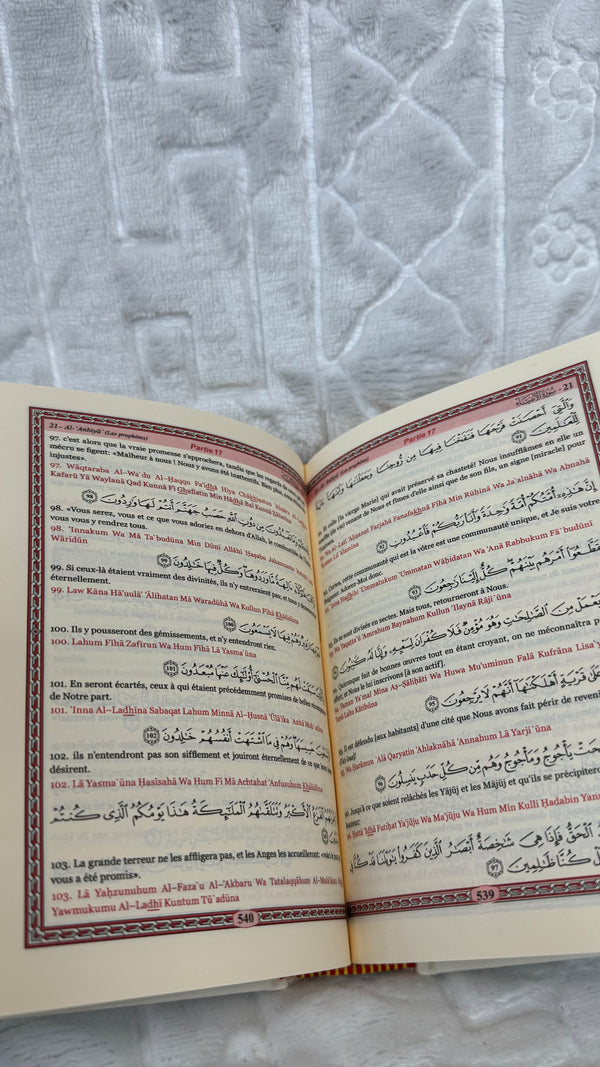 سورة الأنبياء - 21
Partie 17
وَٱلَّتِىٓ أَحْصَنَتْ فَرْجَهَا فَنَفَخْنَا فِيهَا مِن رُّوحِنَا وَجَعَلْنَٰهَا وَٱبْنَهَآ ءَايَةً
لِّلْعَٰلَمِينَ
vierge Marie) qui avait préservé sa chasteté! Nous insufflâmes en elle un
vie) venant de Nous et fîmes d'elle ainsi que de son fils, un signe (miracle) pour
Wa Al-Latī 'Aĥşanat Farjahā Fanafakhnā Fīhā Min Rūĥinā Wa Ja`alnāhā Wa Abnahā
إِنَّ هَٰذِهِۦٓ أُمَّتُكُمْ أُمَّةً وَٰحِدَةً وَأَنَا۠ رَبُّكُمْ فَٱعْبُدُونِ
Certes, cette communauté qui est la vôtre est une communauté unique, et Je suis votre
Adorez-Moi donc.
Hadhihi 'Ummatukum 'Ummatan Wāĥidatan Wa 'Anā Rabbukum Fā`budūni
وَتَقَطَّعُوٓا۟ أَمْرَهُم بَيْنَهُمْ كُلٌّ إِلَيْنَا رَٰجِعُونَ 93
se sont divisés en sectes. Mais tous, retourneront à Nous.
Wa Taqaţţa`ū 'Amrahum Baynahum Kullun 'Ilaynā Rāji`ūna
يَعْمَلْ مِنَ ٱلصَّٰلِحَٰتِ وَهُوَ مُؤْمِنٌ فَلَا كُفْرَانَ لِسَعْيِهِۦ
fait de bonnes œuvres tout en étant croyant, on ne méconnaîtra
et Nous lui inscrivons [à son actif].
Ya`mal Mina Aş-Şāliĥāti Wa Huwa Mu'uminun Falā Kufrāna Lisa`y
Lahu Kātibūna
عَلَىٰ قَرْيَةٍ أَهْلَكْنَٰهَآ أَنَّهُمْ لَا يَرْجِعُونَ 95
défendu [aux habitants] d'une cité que Nous avons fait périr de reven
Wa Ĥarāmun `Alá Qaryatin 'Ahlaknāhā 'Annahum Lā Yarji`ūna
فُتِحَتْ يَأْجُوجُ وَمَأْجُوجُ وَهُم مِّن كُلِّ حَدَبٍ يَنسِلُونَ 96
Jusqu'à ce que soient relâchés les Yâjûj et les Mâjûj et qu'ils se précipiteront
hauteur;
Ĥattá 'Idhā Futiĥat Ya'jūju Wa Ma'jūju Wa Hum Min Kulli Ĥadabin Yans
ٱلْحَقُّ فَإِذَا هِىَ شَٰخِصَةٌ أَبْصَٰرُ ٱلَّذِينَ كَفَرُوا۟ يَٰوَيْلَنَا قَدْ كُنَّا
كُنَّا ظَٰلِمِينَ 97
539
21 - Al- 'Anbiyâ' (Les prophètes)
Partie 17
97. c'est alors que la vraie promesse s'approchera, tandis que les regards de
mécru se figent: «Malheur à nous! Nous y avons été inattentifs. Bien plus
injustes».
97. Wāqtaraba Al-Wa`du Al-Ĥaqqu Fa'idhā Hiya Chākhişatun 'Abşāru Al-Ladhīna
Kafarū Yā Waylanā Qad Kunnā Fī Ghaflatin Min Hādhā Bal Kunnā
إِنَّكُمْ وَمَا تَعْبُدُونَ مِن دُونِ ٱللَّهِ حَصَبُ جَهَنَّمَ أَنتُمْ لَهَا وَٰرِدُونَ 98
98. «Vous serez, vous et ce que vous adoriez en dehors d'Allah, le combustible
vous vous y rendrez tous.
98. 'Innakum Wa Mā Ta`budūna Min Dūni Allāhi Ĥaşabu Jahannama
Wāridūn
لَوْ كَانَ هَٰٓؤُلَآءِ ءَالِهَةً مَّا وَرَدُوهَا وَكُلٌّ فِيهَا خَٰلِدُونَ 99
99. Si ceux-là étaient vraiment des divinités, ils n'y entreraient pas; et tous y
éternellement.
99. Law Kāna Hā'uulā' 'Ālihatan Mā Waradūhā Wa Kullun Fīhā Khālidūna
لَهُمْ فِيهَا زَفِيرٌ وَهُمْ فِيهَا لَا يَسْمَعُونَ
100. Ils y pousseront des gémissements, et n'y entendront rien.
100. Lahum Fīhā Zafīrun Wa Hum Fīhā Lā Yasma`ūna
إِنَّ ٱلَّذِينَ سَبَقَتْ لَهُم مِّنَّا ٱلْحُسْنَىٰٓ أُو۟لَٰٓئِكَ عَنْهَا مُبْعَدُونَ 101
101. En seront écartés, ceux à qui étaient précédemment promises de belles
de Notre part.
101. 'Inna Al-Ladhīna Sabaqat Lahum Minnā Al-Ĥusná 'Ūlā'ika `Anhā Mub`adūna
لَا يَسْمَعُونَ حَسِيسَهَا وَهُمْ فِى مَا ٱشْتَهَتْ أَنفُسُهُمْ خَٰلِدُونَ 102
102. ils n'entendront pas son sifflement et jouiront éternellement de ce que
désirent.
102. Lā Yasma`ūna Ĥasīsahā Wa Hum Fī Mā Achtahat 'Anfusuhum Khālidūna
ٱلْفَزَعُ ٱلْأَكْبَرُ وَتَتَلَقَّىٰهُمُ ٱلْمَلَٰٓئِكَةُ هَٰذَا يَوْمُكُمُ ٱلَّذِى كُنتُمْ
103. La grande terreur ne les affligera pas, et les Anges les accueilleront:
vous a été promis».
103. Lā Yaĥzunuhum Al-Faza`u Al-'Akbaru Wa Tatalaqqāhum Al-Malā'ikatu
Yawmukumu Al-Ladhī Kuntum Tū`adūna
540